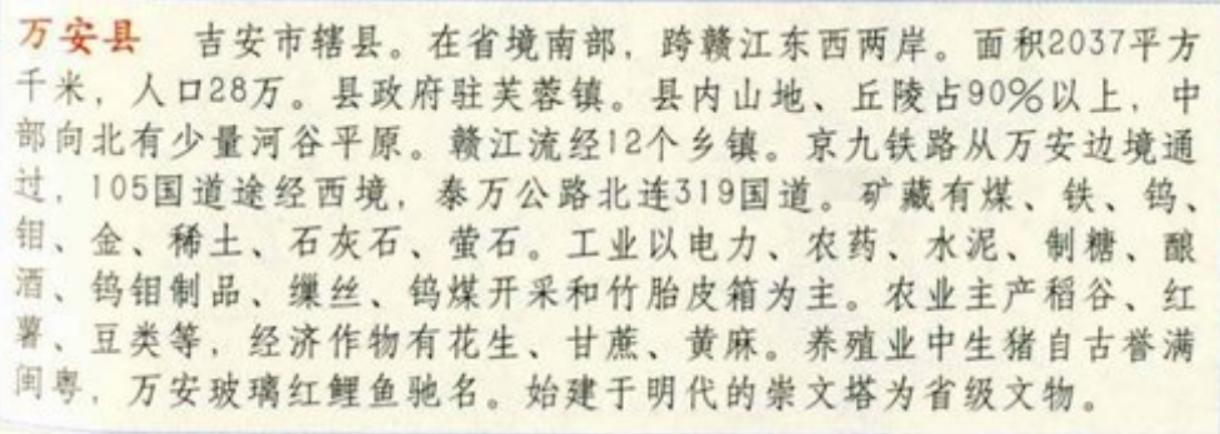 万安县 吉安市辖县。在省境南部，跨赣江东西两岸。面积2037平方
千米，人口28万。县政府驻芙蓉镇。县内山地、丘陵占90%以上，中
部向北有少量河谷平原。赣江流经12个乡镇。京九铁路从万安边境通
过，105国道途经西境，泰万公路北连319国道。矿藏有煤、铁、钨、
钼、金、稀土、石灰石、萤石。工业以电力、农药、水泥、制糖、酿
酒、钨钼制品、缫丝、钨煤开采和竹胎皮箱为主。农业主产稻谷、红
薯、豆类等，经济作物有花生、甘蔗、黄麻。养殖业中生猪自古誉满
闽粤，万安玻璃红鲤鱼驰名。始建于明代的崇文塔为省级文物。